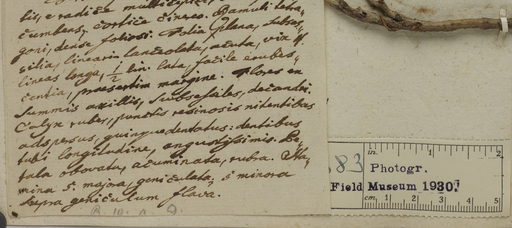 bis, e radice multicipite,
cumbens, cortice cinereo. Ramuli tetra,
goni, dense foliosi. Folia plana, subses,
silia, linearia lanceolata, acuta, vix 4.
lineas longa, 1/2 lin. lata, facile erubes,
centia, praesertim margine. Flores ex
summis axillis, subsessiles, decandri.
Calyx ruber, punctis resinosis nitentibus
adspersus, quinquedentatus: dentibus
tubi longitudine, angustissimis. Pe,
tala obovata, acuminata, rubra. Sta,
mina 5. majora, geniculata, 5 minora
supra geniculum flava.
83 Photogr.
Field Museum 1930.
in. 1 2
cm. 1 2 3 4 5